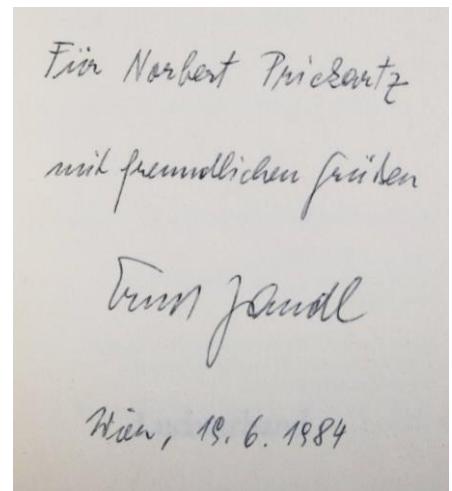 Für Norbert Prickartz
mit freundlichen Grüßen
Ernst Jandl
Wien, 19. 6. 1984